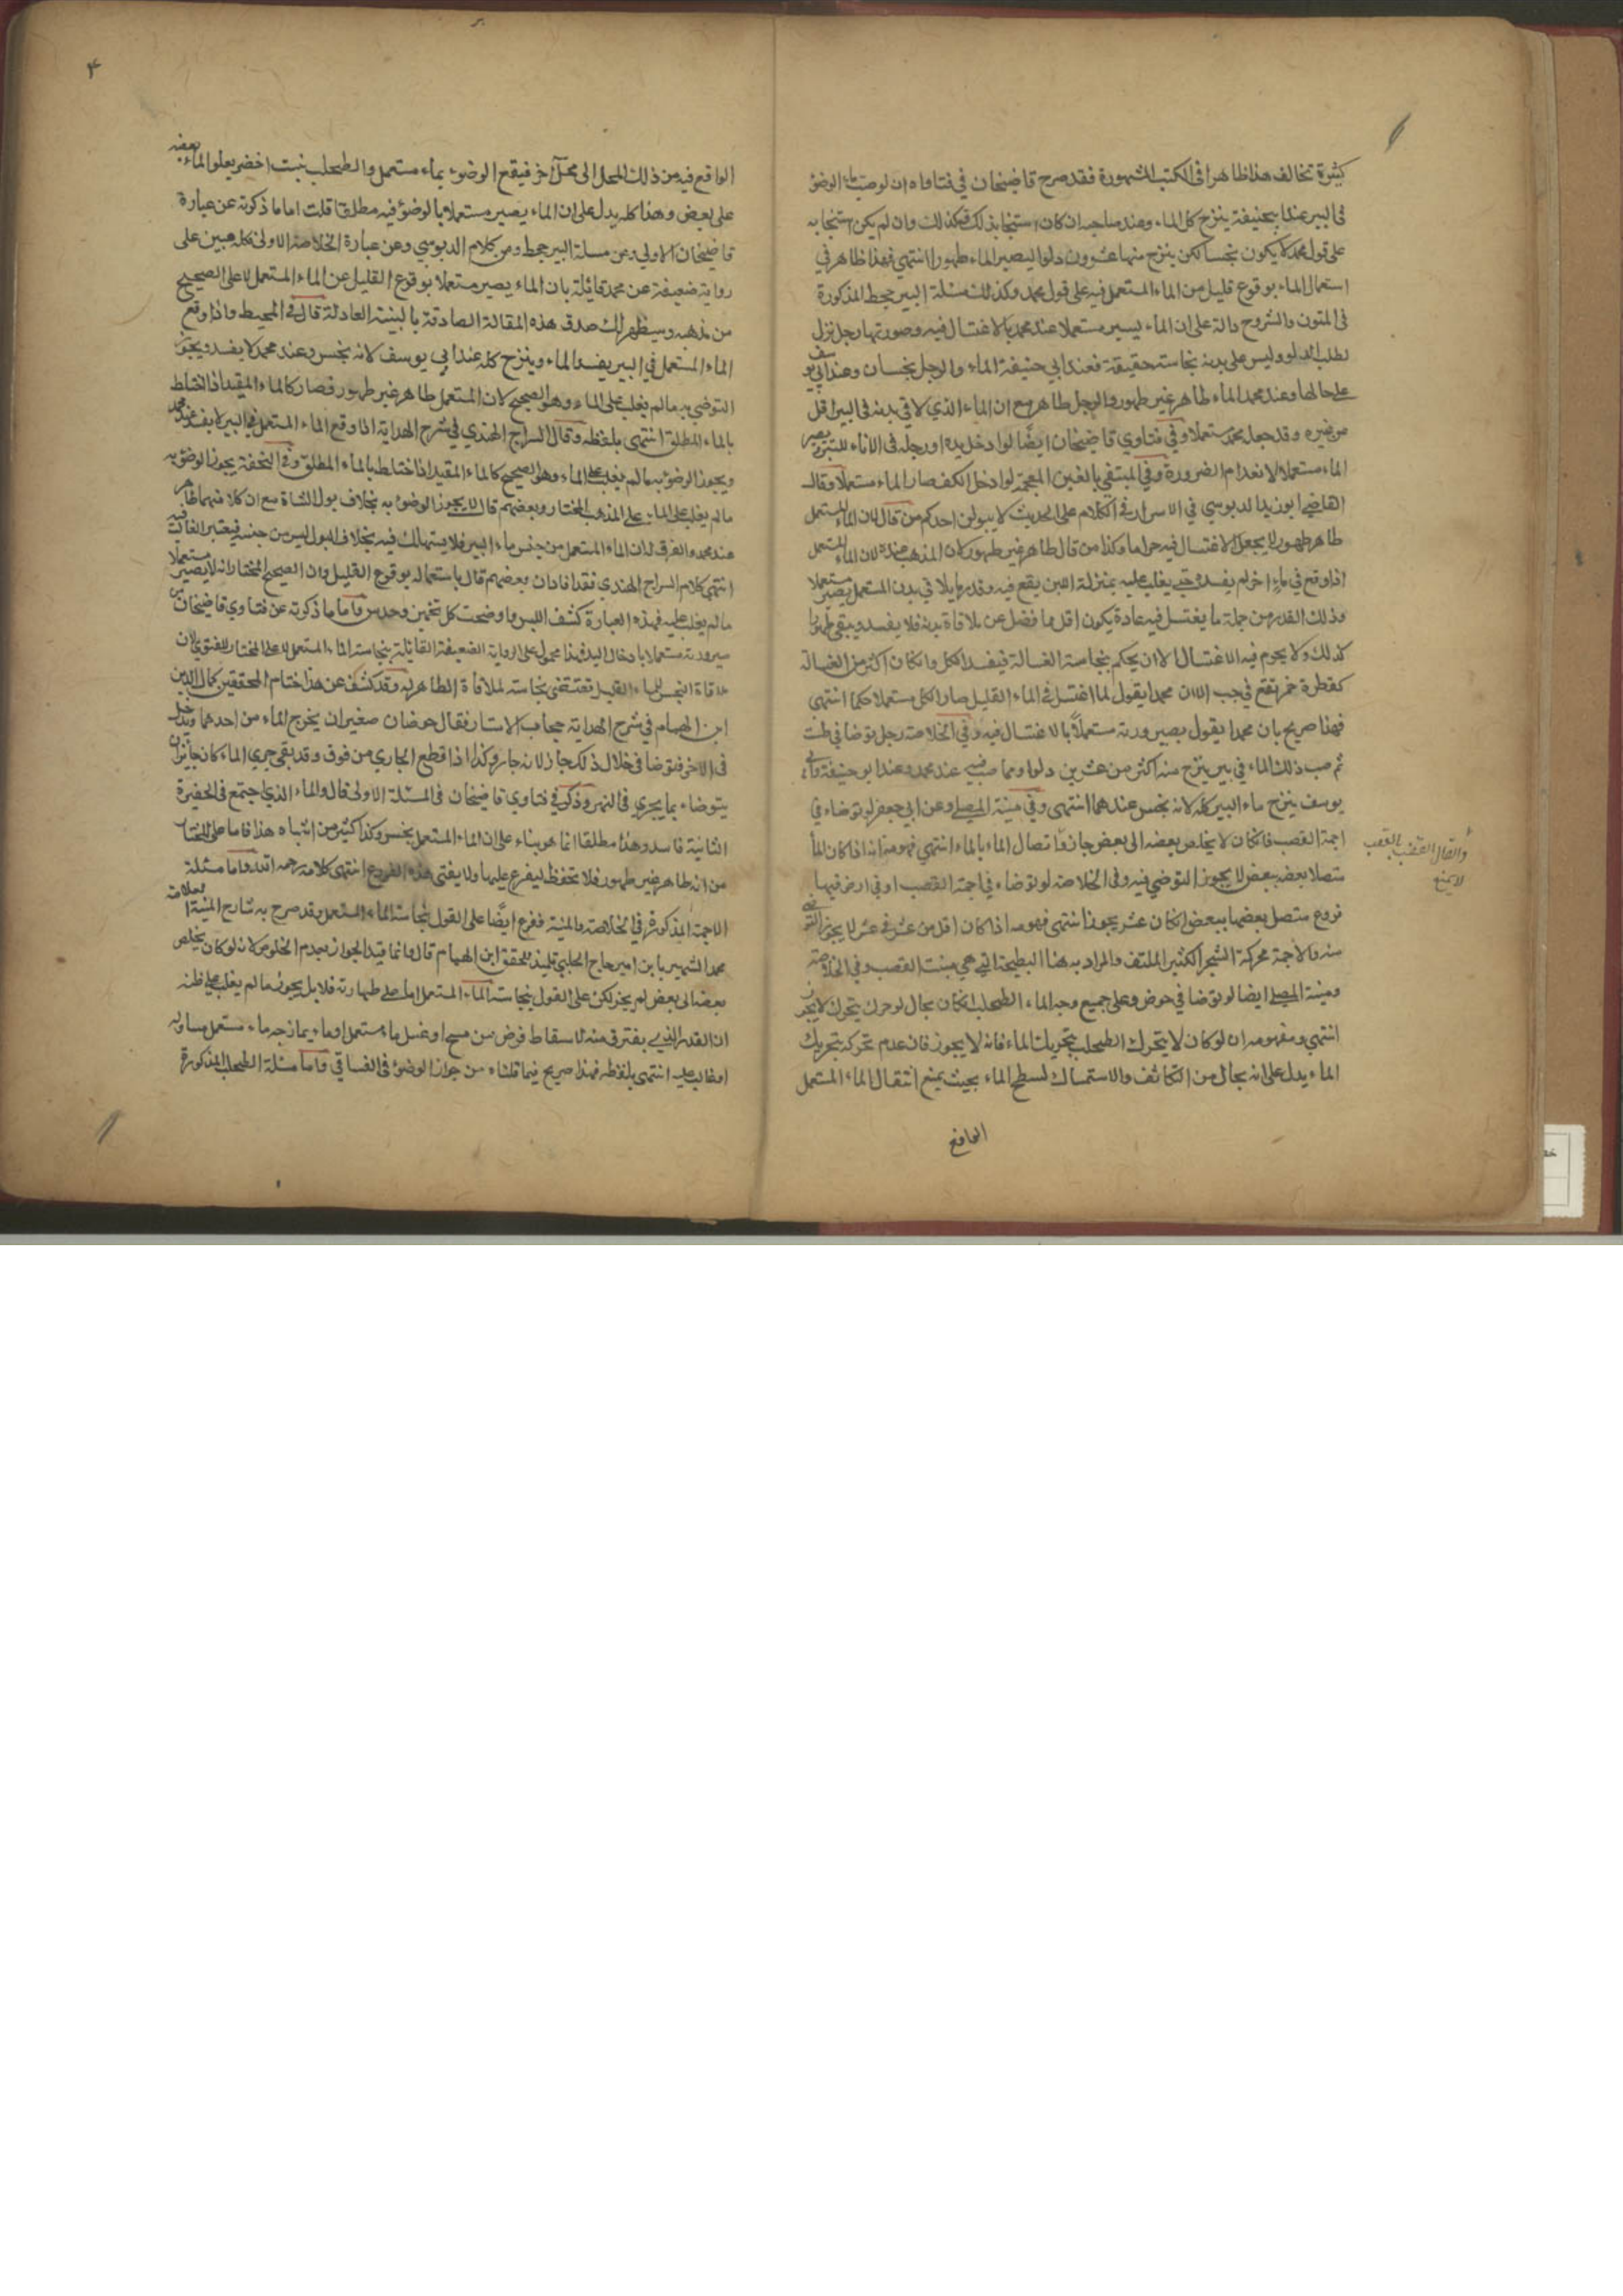 كثيرة تخالف هذا ظاهرا في الكتب المشهورة فقد صرح قاضيخان في فتاواه ان لو صب ماء الوضؤ
في البير عند ابيحنيفة ينزح كل الماء وعند صاحبيه ان كان استنجا بذلك فكذلك وان لم يكن استنجا به
على قول محمد لا يكون نجسا لكن ينزح منها عشرون دلوا ليصير الماء طهورا انتهي فهذا ظاهر في
استعمال الماء بوقوع قليل من الماء المستعمل فيه على قول محمد وكذلك مسئلة البير جحط المذكورة
في المتون والشروح دالة على ان الماء يسير مستعملا عند محمد بالاغتسال فيه وصورتها رجل نزل
لطلب الدلو وليس على بدنه نجاسة حقيقة فعند ابي حنيفة الماء والرجل نجسان وعند ابي يوسف
على حالها وعند محمد الماء طاهر غير طهور والرجل طاهر مع ان الماء الذي لاقي بدنه في البير اقل
من غيره وقد جعله محمد مستعملا وفي فتاوي قاضيخان ايضا لو ادخل يده او رجله في الاناء للتبرد يصير
الماء مستعملا لانعدام الضرورة وفي المبتغي بالغين المعجمة لو ادخل الكف صار الماء مستعملا وقال
القاضي ابو زيد الدبوسي في الاسرار في الكلام على الحديث لا يبولن احدكم من قال بان الماء المستعمل
طاهر طهور لا يجعل الاغتسال فيه حراما وكذا من قال طاهر غير طهور لان المذهب عنده لان الماء المستعمل
اذا وقع في ماء اخر لم يفسده حتي يغلب عليه بمنزلة اللبن يقع فيه وقدر ما يلاقي بدن المستعمل يصير مستعملا
وذلك القدر من جملة ما يغتسل فيه عادة يكون اقل مما فضل عن ملاقاة بدنه فلا يفسد ويبقي طهورا
كذلك ولا يحرم فيه الاغتسال الا ان يحكم بنجاسة الغسالة فيفسد الكل وان كان اكثر من الغسالة
كقطرة خمر تقع في جب الا ان محمدا يقول لما اغتسل في الماء القليل صار الكل مستعملا حكما انتهى
فهذا صريح بان محمدا يقول بصيرورته مستعملا بالاغتسال فيه وفي الخلاصة رجل توضا في طست
ثم صب ذلك الماء في بير ينزح منه اكثر من عشرين دلوا ومما صب فيه عند محمد وعند ابو حنيفة وابي
يوسف ينزح ماء البير كله لانه نجس عندهما انتهى وفي منية المصلي وعن ابي جعفر لو توضاء في
اجمة القصب فان كان لا يخلص بعضه الى بعض جاز واتصال الماء بالماء انتهي فهومه انه اذا كان الماء
متصلا بعضه ببعض لا يجوز التوضي فيه وفي الخلاصة لو توضاء في اجمة القصب او في ارض فيها
زروع متصل بعضها ببعض ان كان عشر يجوز انتهى فهومه اذا كان اقل من عشر في عشر لا يجوز التوضي
منه والاجمة محركة الشجر الكثير الملتف والمراد به هنا البطيحة التي هي منبت القصب وفي الخلاصة
ومنية المصلي ايضا لو توضا في حوض وعلى جميع وجه الماء الطحلب ان كان بحال لو حرك يتحرك لا يجوز
انتهي ومفهومه ان لو كان لا يتحرك الطحلب بتحريك الماء فانه لا يجوز فان عدم تحركه بتحريك
الماء يدل على انه بحال من التكاثف والاستمساك لسطح الماء بحيث يمنع انتقال الماء المستعمل
الواقع
واتصال القصب بالقصب
لا يمنع
٣
الواقع فيه من ذلك المحل الى محل آخر فيقع الوضوء بماء مستعمل والطحلب نبت اخضر يعلو الماء بعضه
على بعض وهذا كله يدل على ان الماء يصير مستعملا بالوضؤ فيه مطلقا قلت اما ما ذكرته عن عبارة
قاضيخان الاولي وعن مسلة البير جحط ومن كلام الدبوسي وعن عبارة الخلاصة الاولى فكله مبين على
رواية ضعيفة عن محمد قائلة بان الماء يصير مستعملا بوقوع القليل عن الماء المستعمل لا على الصحيح
من مذهبه وسيظهر لك صدق هذه المقالة الصادقة بالبينة العادلة قال في المحيط واذا وقع
الماء المستعمل في البير يفسد الماء وينزح كله عند ابي يوسف لانه نجس وعند محمد لا يفسد ويجوز
التوضي به ما لم يغلب على الماء وهو الصحيح لان المستعمل طاهر غير طهور فصار كالماء المقيد اذا اختلط
بالماء المطلق انتهى بلفظه وقال السراج الهندي في شرح الهداية اذا وقع الماء المستعمل في البير لا يفسد عند محمد
ويجوز الوضوء به ما لم يغلب على الماء وهو الصحيح كالماء المقيد اذا اختلط بالماء المطلق وفي التحفة يجوز الوضوء به
ما لم يغلب على الماء على المذهب المختار وبعضهم قال لا يجوز الوضوء به بخلاف بول الشاة مع ان كلا منهما طاهر
عند محمد والفرق له ان الماء المستعمل من جنس ماء البير فلا يستهلك فيه بخلاف البول ليس من جنسه فيعتبر الغالب فيه
انتهى كلام السراج الهندي فقد افاد ان بعضهم قال باستعماله بوقوع القليل وان الصحيح المختار انه لا يصير مستعملا
ما لم يغلب عليه فهذه العبارة كشفت اللبس واوضحت كل تخمين وحدس واما ما ذكرته عن فتاوي قاضيخان من
صيرورته مستعملا بادخال اليد فهذا محمول على الرواية الضعيفة القائلة بنجاسة الماء المستعمل لا على المختار للفتوي لان
ملاقاة النجس للماء القليل تقتضي نجاسته لملاقاة الطاهر له وقد كشف عن هذا ختام المحققين كمال الدين
ابن الهمام في شرح الهداية حجاب الاستار فقال حوضان صغيران يخرج الماء من احدهما ويدخل
في الاخر فتوضا في خلال ذلك جاز لانه جار وكذا اذا قطع الجاري من فوق وقد بقي جري الماء كان جائزا ان
يتوضاء بما يجري في النهر وذكر في فتاوي قاضيخان في المسئلة الاولى قال والماء الذي اجتمع في الحفيرة
الثانية فاسد وهذا مطلقا انما هو بناء على ان الماء المستعمل نجس وكذا كثير من اشباه هذا فاما على المختار
من انه طاهر غير طهور فلا تحفظ ليفرع عليها ولا يفتي هذه الفروع انتهى كلامه رحمه الله واما مسئلة
الاجمة المذكورة في الخلاصة والمنية ففرع ايضا على القول بنجاسة الماء المستعمل وقد صرح به شارح المنية العلامة
محمد الشهير بابن امير حاج الحلبي تلميذ المحقق ابن الهمام قال وانما قيد الجواز بعدم الخلوص لانه لو كان يخلص
بعضه الى بعض لم يجز لكن على القول بنجاسة الماء المستعمل اما على طهارته فلا بل يجوز ما لم يغلب على ظنه
ان القدر الذي يغترفه منه لاسقاط فرض من مسح او غسل ماء مستعمل او ماء يمازجه ماء مستعمل مساو له
او غالب عليه انتهى بلفظه فهذا صريح فيما قلناه من جواز الوضوء في الفساقي واما مسئلة الطحلب المذكورة